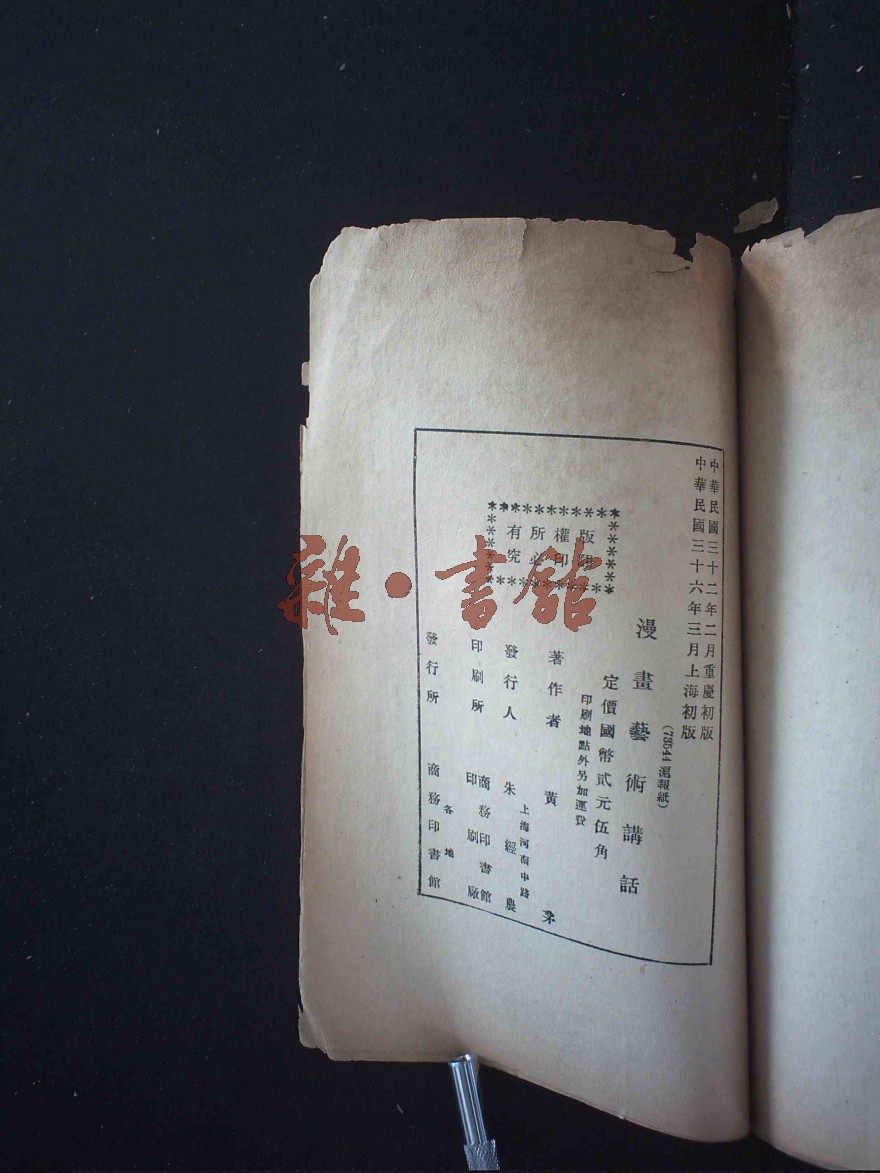 中華民國三十二年二月重慶初版
中華民國三十六年三月上海初版
(73544滬報紙)
漫畫藝術講話
定價國幣貳元伍角
印刷地點外另加運費
版權所有
翻印必究
著作者 黃茅
上海河南中路
發行人 朱經農
印刷所 商務印書館
印刷廠
發行所 各地
商務印書館
雜·書館